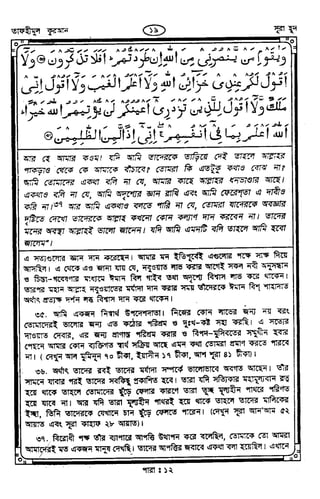 তাফহীমুল কুরআন
১৯
সূরা হূদ
وَيٰقَوْمِ مَنْ يَّنْصُرُنِيْ مِنَ اللّٰهِ اِنْ طَرَدْتُّهُمْ ؕ اَفَلَا تَذَكَّرُوْنَ ۞ وَلَآ
اَقُوْلُ لَكُمْ عِنْدِيْ خَزَآئِنُ اللّٰهِ وَلَآ اَعْلَمُ الْغَيْبَ وَلَآ اَقُوْلُ اِنِّيْ
مَلَكٌ وَّلَآ اَقُوْلُ لِلَّذِيْنَ تَزْدَرِيْٓ اَعْيُنُكُمْ لَنْ يُّؤْتِيَهُمُ اللّٰهُ خَيْرًا ؕ
اَللّٰهُ اَعْلَمُ بِمَا فِيْٓ اَنْفُسِهِمْ ۚۖ اِنِّيْٓ اِذًا لَّمِنَ الظّٰلِمِيْنَ ۞
আর হে আমার কওম! যদি আমি তাদেরকে তাড়িয়ে দেই তাহলে আল্লাহর
পাকড়াও থেকে কে আমাকে বাঁচাবে? তোমরা কি এতটুকু কথাও বোঝ না?
আমি তোমাদের একথা বলি না যে, আমার কাছে আল্লাহর ধনভাণ্ডার আছে।
একথাও বলি না যে, আমি অদৃশ্যের জ্ঞান রাখি এবং আমি ফেরেশতা এ দাবীও
করি না।৩৭ আর আমি একথাও বলতে পারি না যে, তোমরা যাদেরকে অবজ্ঞার
দৃষ্টিতে দেখো তাদেরকে আল্লাহ কখনো কোন কল্যাণ দান করবেন না। তাদের
মনের অবস্থা আল্লাহই ভালো জানেন। যদি আমি এমনটি বলি তাহলে আমি হবো
জালেম"।
এ সত্যগুলোর জ্ঞান দান করেছেন। আমার মন ইতিপূর্বেই এগুলোর পক্ষে সাক্ষ্য দিয়ে
আসছিল। এ থেকে এও জানা যায় যে, নবুওয়াত লাভ করার আগেই সকল নবী অনুসন্ধান
ও চিন্তা-গবেষণার মাধ্যমে ঈমান বিল গাইব তথা অদৃশ্যে বিশ্বাস লাভ করে থাকেন।
তারপর মহান আল্লাহ নবুওয়াতের মর্যাদা দান করার সময় তাঁদেরকে ঈমান বিশ্ শাহাদাত
অর্থাৎ প্রত্যক্ষ দর্শন লব্ধ বিশ্বাস দান করে থাকেন।
৩৫. আমি একজন নিস্বার্থ উপদেশদাতা। নিজের কোন লাভের জন্য নয় বরং
তোমাদেরই ভালোর জন্য এত কঠোর পরিশ্রম ও দুঃখ-কষ্ট সহ্য করছি। এ সত্যের
দাওয়াত দেবার, এর জন্য প্রাণান্ত পরিশ্রম করার ও বিপদ-মুসিবতের সম্মুখীন হবার
পেছনে আমার কোন ব্যক্তিগত স্বার্থ সক্রিয় আছে এমন কথা তোমরা প্রমাণ করতে পারবে
না। (দেখুন আল মু'মিনূন ৭০ টীকা, ইয়াসীন ১৭ টীকা, আশ শূরা ৪১ টীকা)।
৩৬. অর্থাৎ তাদের রবই তাদের মর্যাদা সম্পর্কে ভালোভাবে অবগত আছেন। তাঁর
সামনে যাবার পরই তাদের সবকিছু প্রকাশিত হবে। তারা যদি সত্যিকার মহামূল্যবান রত্ন
হয়ে থাকে তাহলে তোমাদের ছুঁড়ে ফেলার কারণে তারা তুচ্ছ মূল্যহীন পাথরে পরিণত
হয়ে যাবে না। আর যদি তারা মূল্যহীন পাথরই হয়ে থাকে তাহলে তাদের মালিকের
ইচ্ছা, তিনি তাদেরকে যেখানে চান ছুঁড়ে ফেলতে পারেন। (দেখুন সূরা আন'আম ৫২
আয়াত এবং সূরা কাহাফ ২৮ আয়াত)।
৩৭. বিরোধী পক্ষ তাঁর ব্যাপারে আপত্তি উত্থাপন করে বলেছিল, তোমাকে তো আমরা
আমাদেরই মত একজন মানুষ দেখছি। তাদের আপত্তির জবাবে একথা বলা হয়েছিল। এখানে
পারা : ১২